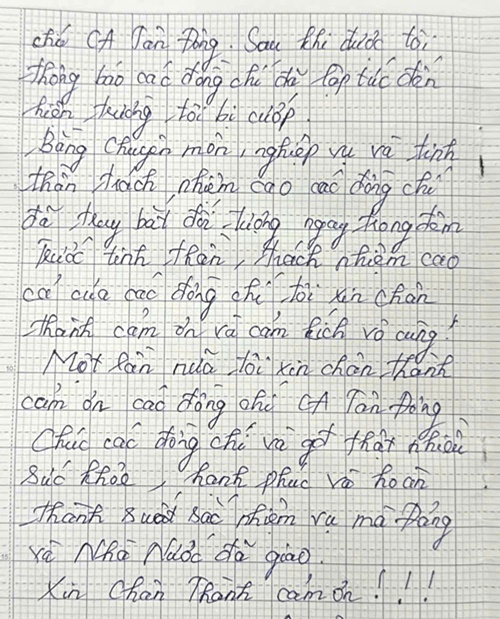 chí CA Tân Đông. Sau khi được tôi
thông báo các đồng chí đã lập tức đến
hiện trường tôi bị cướp.
Bằng chuyên môn, nghiệp vụ và tinh
thần trách nhiệm cao các đồng chí
đã truy bắt đối tượng ngay trong đêm
Trước tinh thần, trách nhiệm cao
cả của các đồng chí tôi xin chân
thành cảm ơn và cảm kích vô cùng!
Một lần nữa tôi xin chân thành
cảm ơn các đồng chí CA Tân Đông
Chúc các đồng chí và gđ thật nhiều
sức khỏe, hạnh phúc và hoàn
thành suất sắc nhiệm vụ mà Đảng
và Nhà Nước đã giao.
Xin Chân Thành cảm ơn!!!